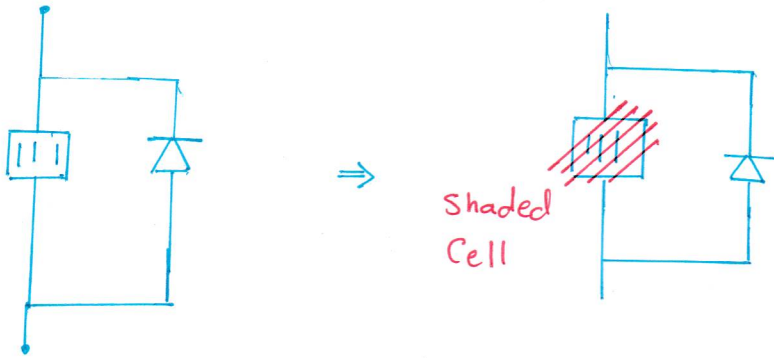 Shaded
Cell